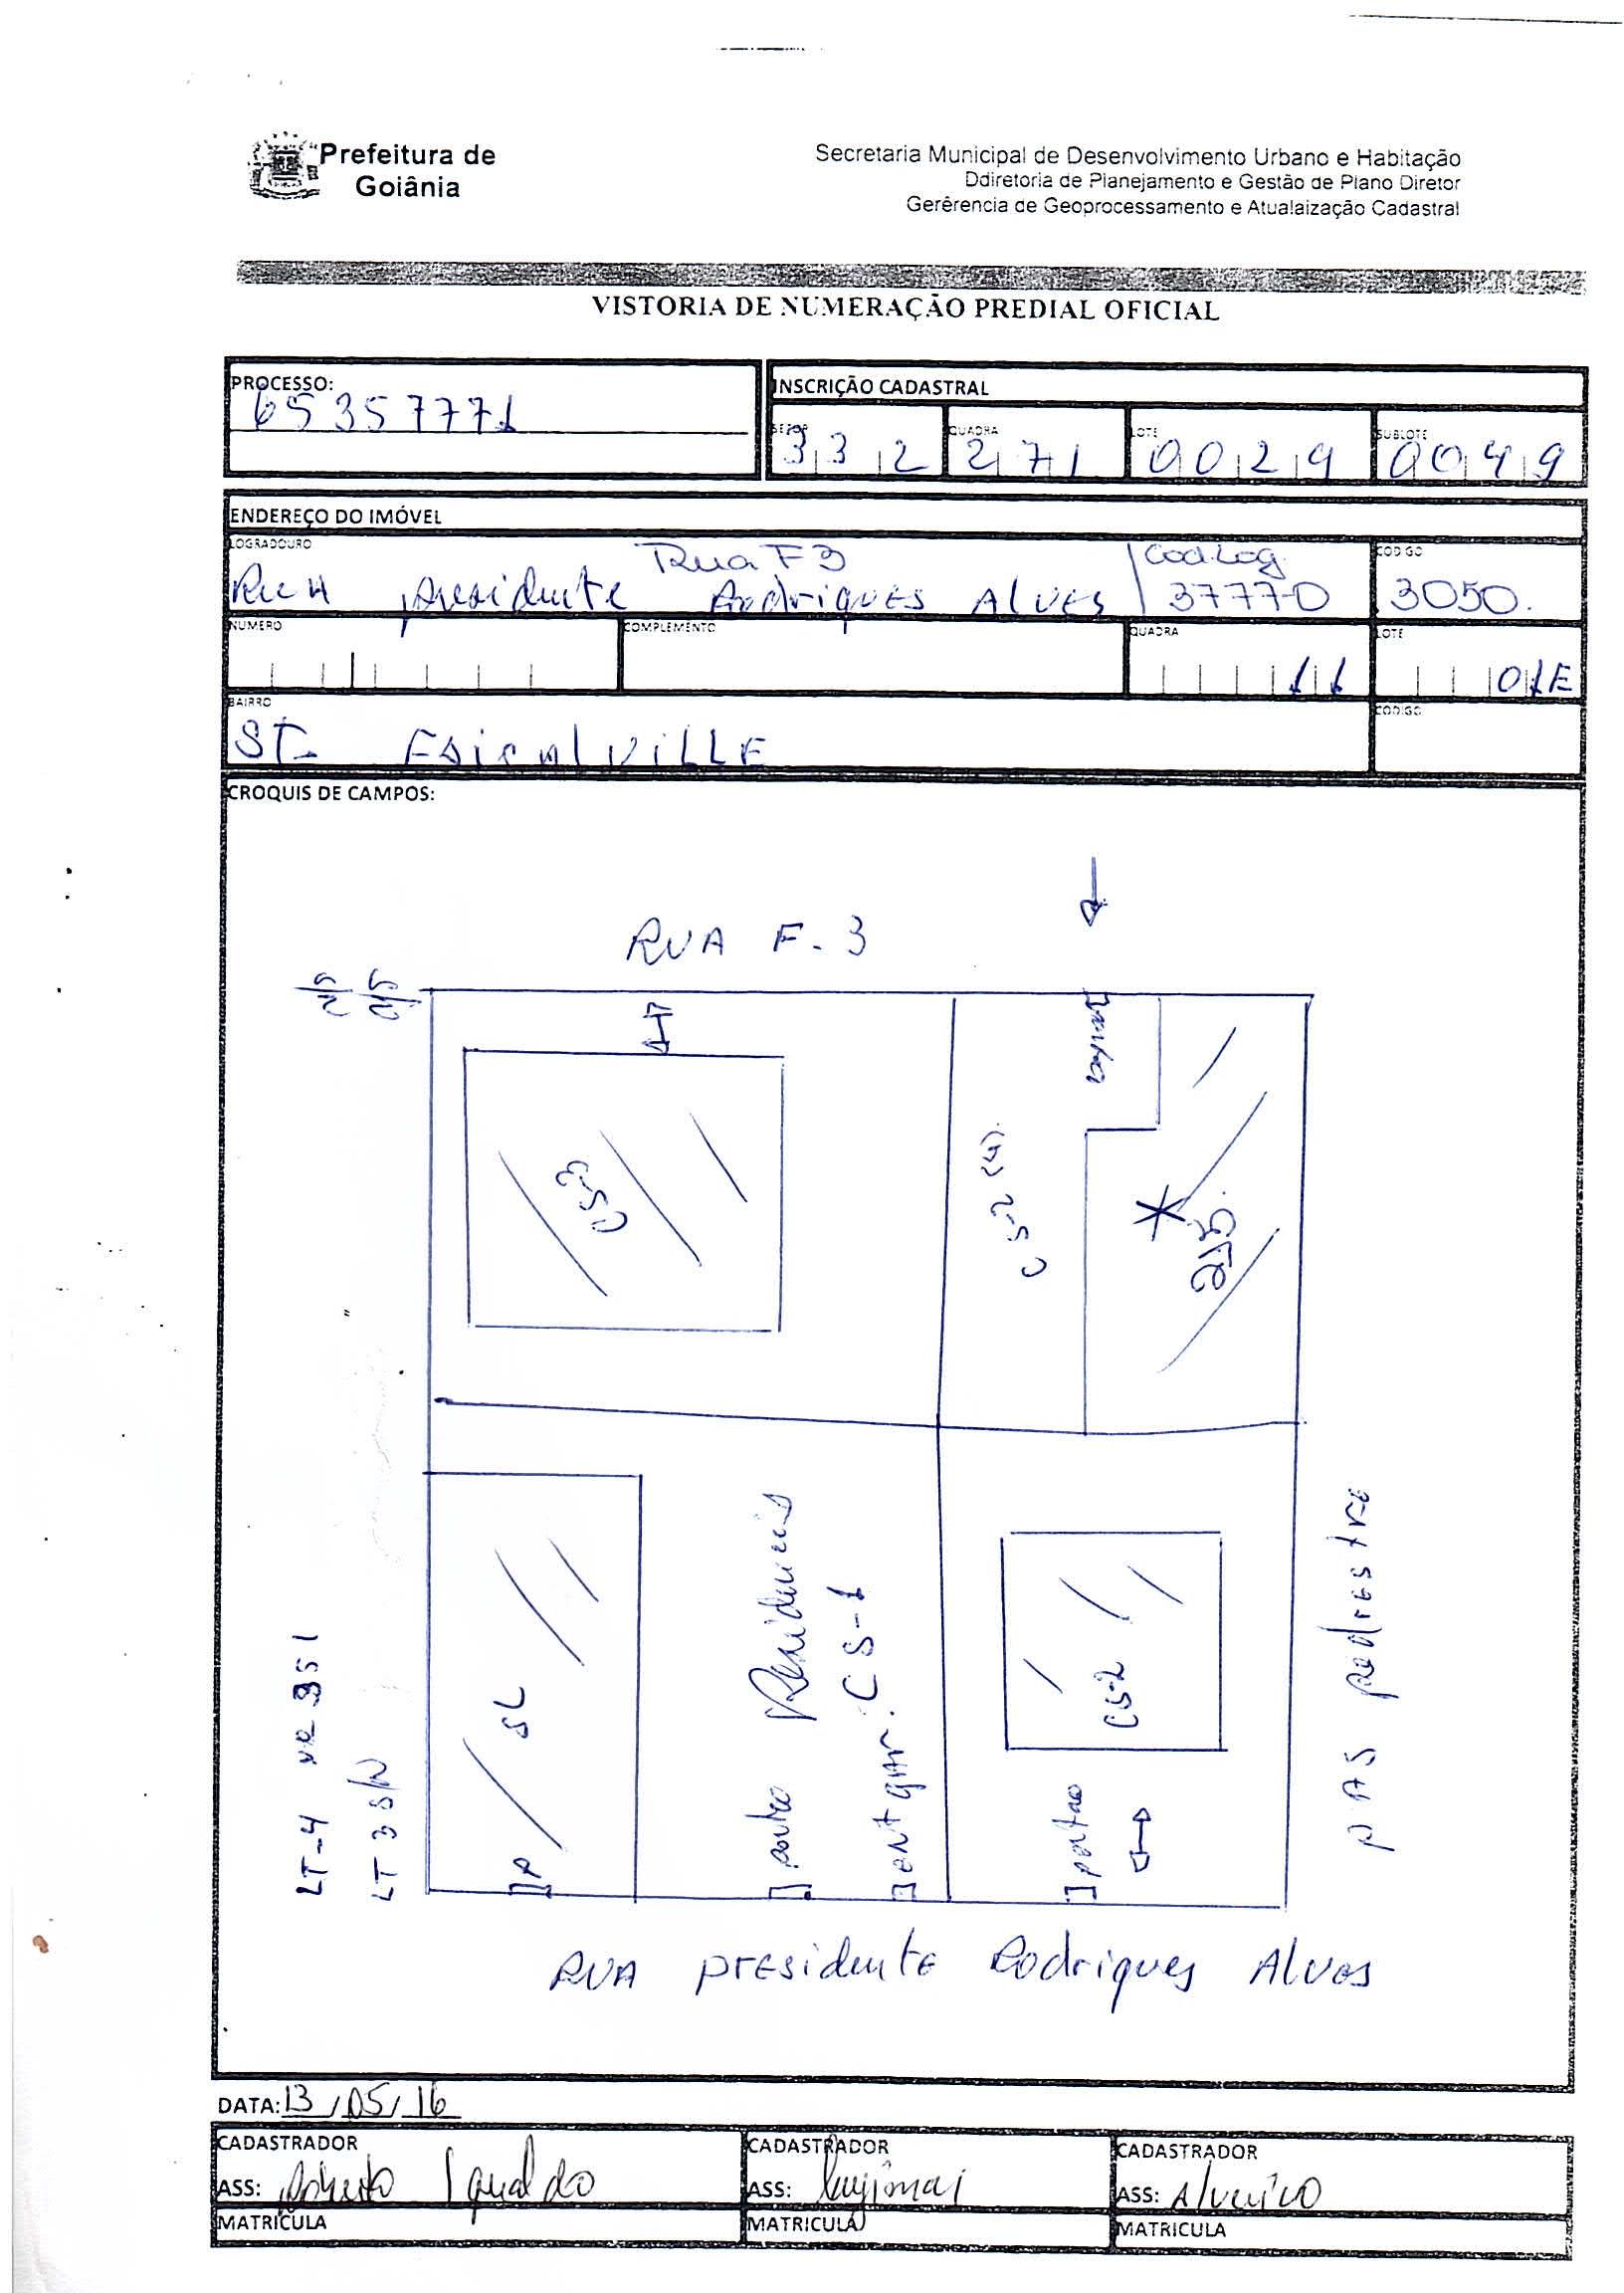 Prefeitura de
Goiânia
Secretaria Municipal de Desenvolvimento Urbano e Habitação
Ddiretoria de Planejamento e Gestão de Plano Diretor
Gerêrencia de Geoprocessamento e Atualaização Cadastral
VISTORIA DE NUMERAÇÃO PREDIAL OFICIAL
PROCESSO:
65357771
INSCRIÇÃO CADASTRAL
SETOR QUADRA LOTE SUBLOTE
332 271 0029 0049
ENDEREÇO DO IMÓVEL
LOGRADOURO CODIGO
Rua F3 Cod.Log.
RuA presidente Rodrigues Alves 37770 3050.
NUMERO COMPLEMENTO QUADRA LOTE
11 01E
BAIRRO CODIGO
ST. FAicAlviLLE
CROQUIS DE CAMPOS:
RUA F-3
CS-3
CS-2 (4).
*
SL
Residencis
CS-1
portão
ent gar.
CS-2
portao
P
LT-4 NR 351
LT 3 S/N
pAS pedrestre
RUA presidente Rodrigues Alves
DATA: 13/05/16
CADASTRADOR CADASTRADOR CADASTRADOR
ASS: ASS: ASS:
MATRICULA MATRICULA MATRICULA